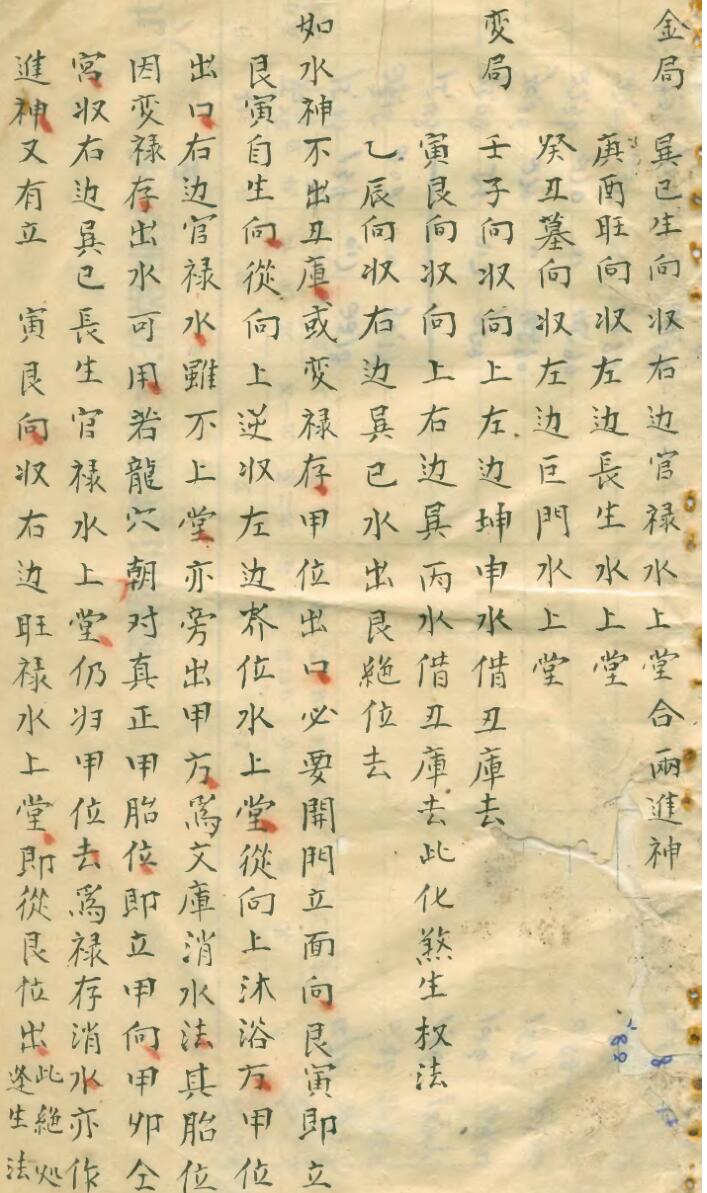 金局 巽巳生向収右边官禄水上堂合兩進神
庚酉旺向収左边長生水上堂
癸丑墓向収左边巨門水上堂
变局 壬子向収向上左边坤申水借丑庫去
寅艮向収向上右边巽丙水借丑庫去此化煞生权法
乙辰向収右边巽巳水出艮絶位去
如水神不出丑庫或变禄存甲位出口必要開門立面向艮寅即立
艮寅自生向從向上逆収左边养位水上堂從向上沐浴方甲位
出口右边官禄水雖不上堂亦旁出甲方為文庫消水法其胎位
因变禄存出水可用若龍穴朝对真正甲胎位即立甲向甲卯仝
宫収右边巽巳長生官禄水上堂仍归甲位去為禄存消水亦作
進神又有立 寅艮向収右边旺禄水上堂即從艮位出此絶処逢生法